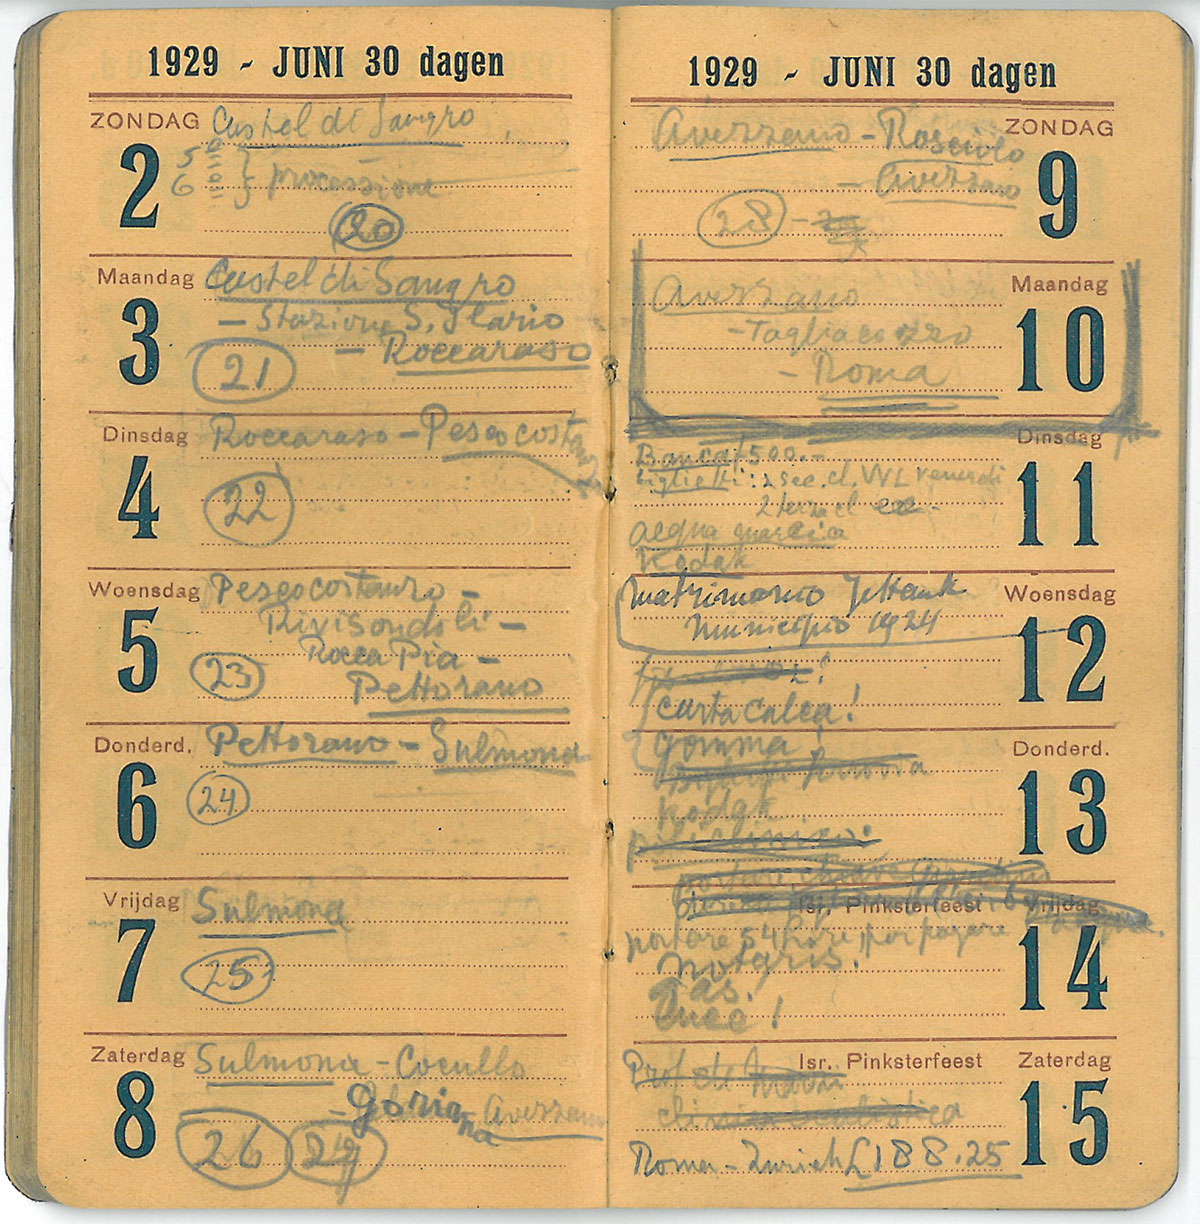 1929 - JUNI 30 dagen
ZONDAG Castel di Sangro
2
5
6
processione
20
Maandag Castel di Sangro
3 - Stazione S. Ilario
- Roccaraso
21
Dinsdag Roccaraso - Pescocostanzo
4
22
Woensdag Pescocostanzo -
5 Rivisondoli -
Rocca Pia -
23 Pettorano
Donderd. Pettorano - Sulmona
6
24
Vrijdag Sulmona
7
25
Zaterdag Sulmona - Cocullo
8 - Goriana Avezzano
26 27
1929 - JUNI 30 dagen
Avezzano - Rosciolo ZONDAG
- Avezzano 9
28 -
Avezzano Maandag
- Tagliacozzo 10
- Roma
Dinsdag
Banca 1500.-
biglietti: 2 sec. cl. VVL venerdi 11
2 terza cl
acqua marcia
Kodak
matrimonio Jetta Woensdag
municipio 1924 12
carta calca!
gomma! Donderd.
13
Kodak
policlinico:
portare chiave
Isr. Pinksterfeest Vrijdag
portare 54 lire per pagare 14
notaris!
gas!
luce!
Prof. de Isr. Pinksterfeest Zaterdag
15
Roma - Zurich £188.25